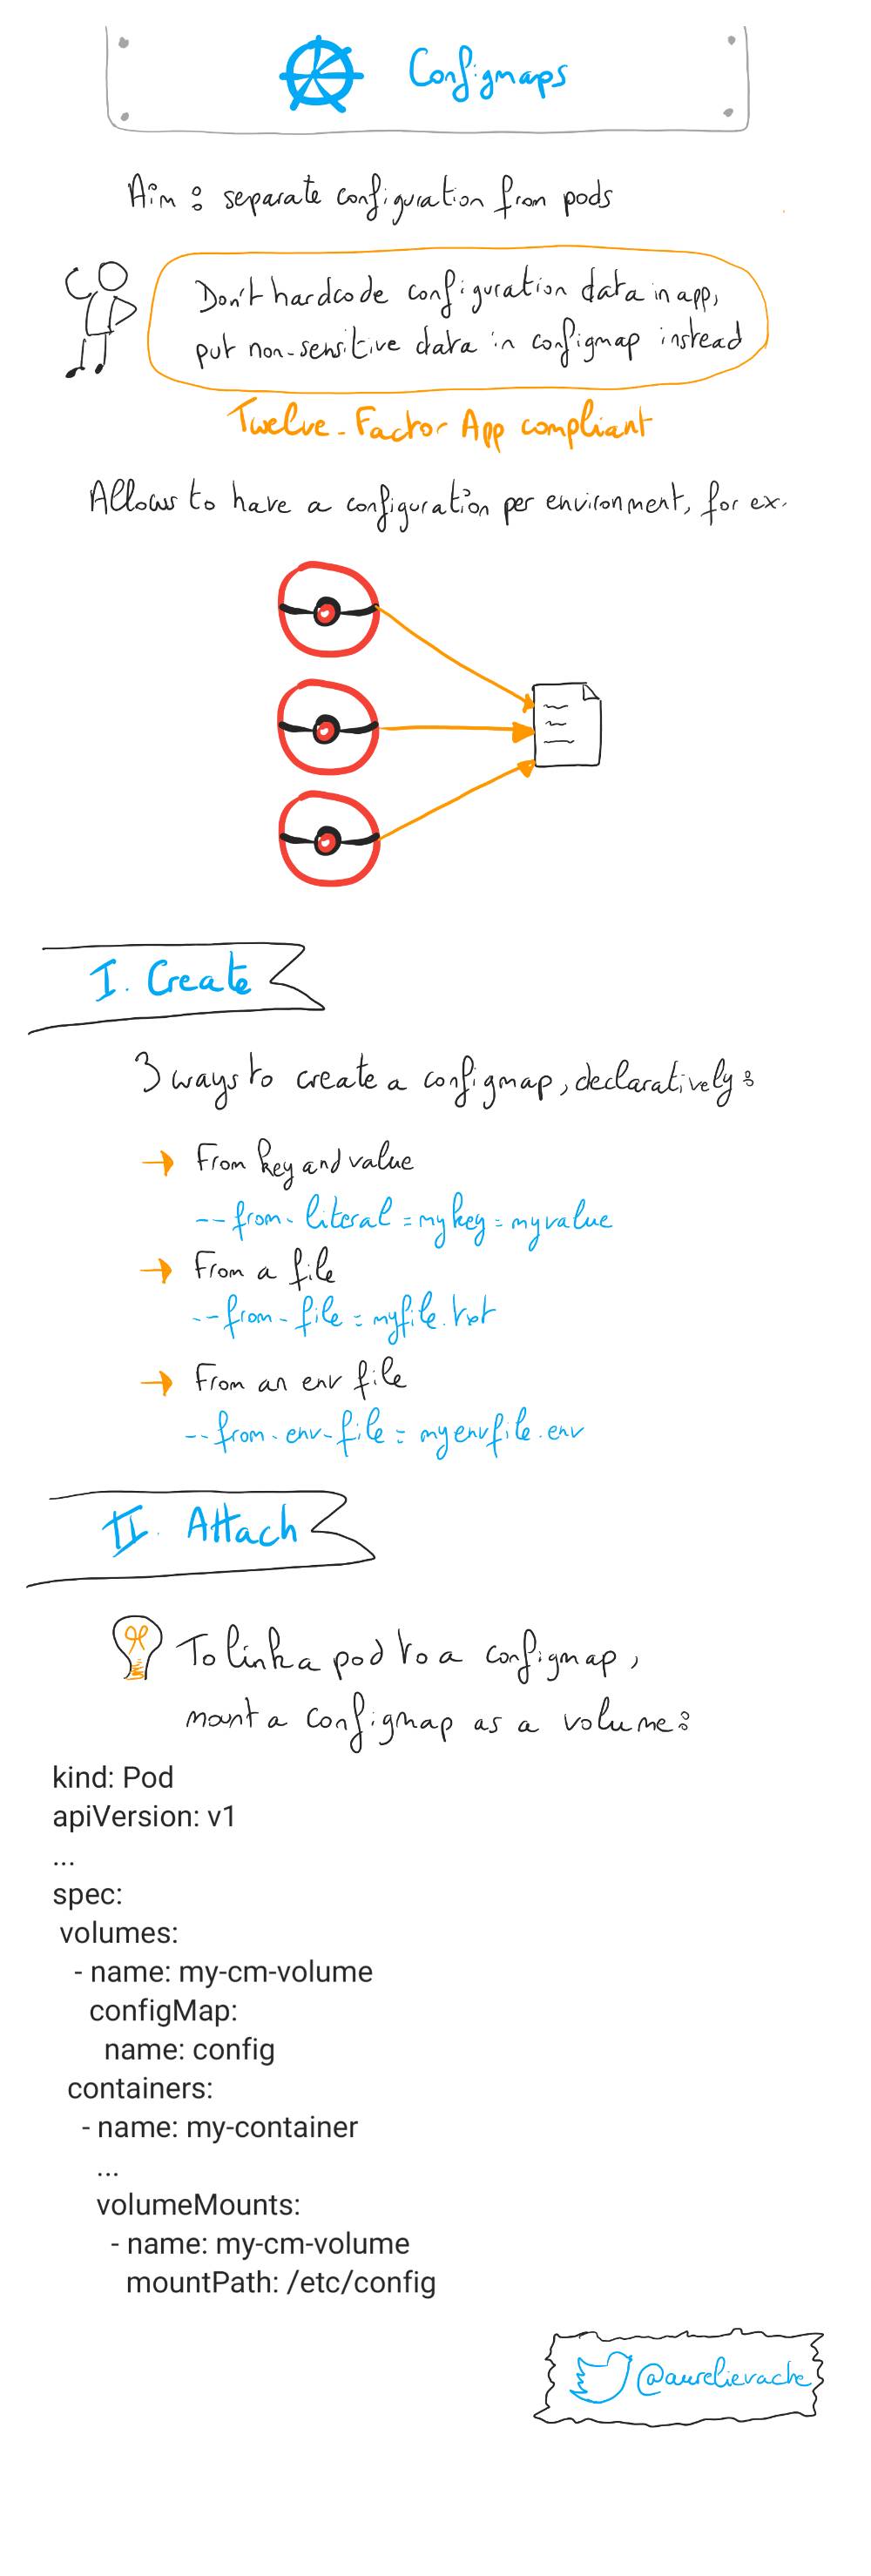 Configmaps
Aim : separate configuration from pods
Don't hardcode configuration data in app,
put non-sensitive data in configmap instead
Twelve-Factor App compliant
Allows to have a configuration per environment, for ex.
I. Create
3 ways to create a configmap, declaratively :
→ From key and value
--from-literal=mykey=myvalue
→ From a file
--from-file=myfile.txt
→ From an env file
--from-env-file=myenvfile.env
II. Attach
To link a pod to a configmap,
mount a configmap as a volume :
kind: Pod
apiVersion: v1
...
spec:
volumes:
- name: my-cm-volume
configMap:
name: config
containers:
- name: my-container
...
volumeMounts:
- name: my-cm-volume
mountPath: /etc/config
@aurelievache